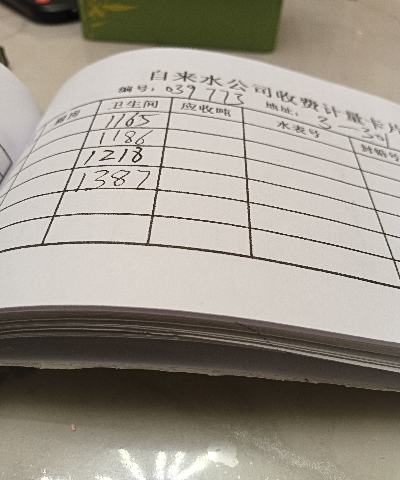 自来水公司收费计量卡片
编号: 039773 地址: 3-301
厨房 卫生间 应收吨 水表号 封铅号
1165
1186
1218
1387